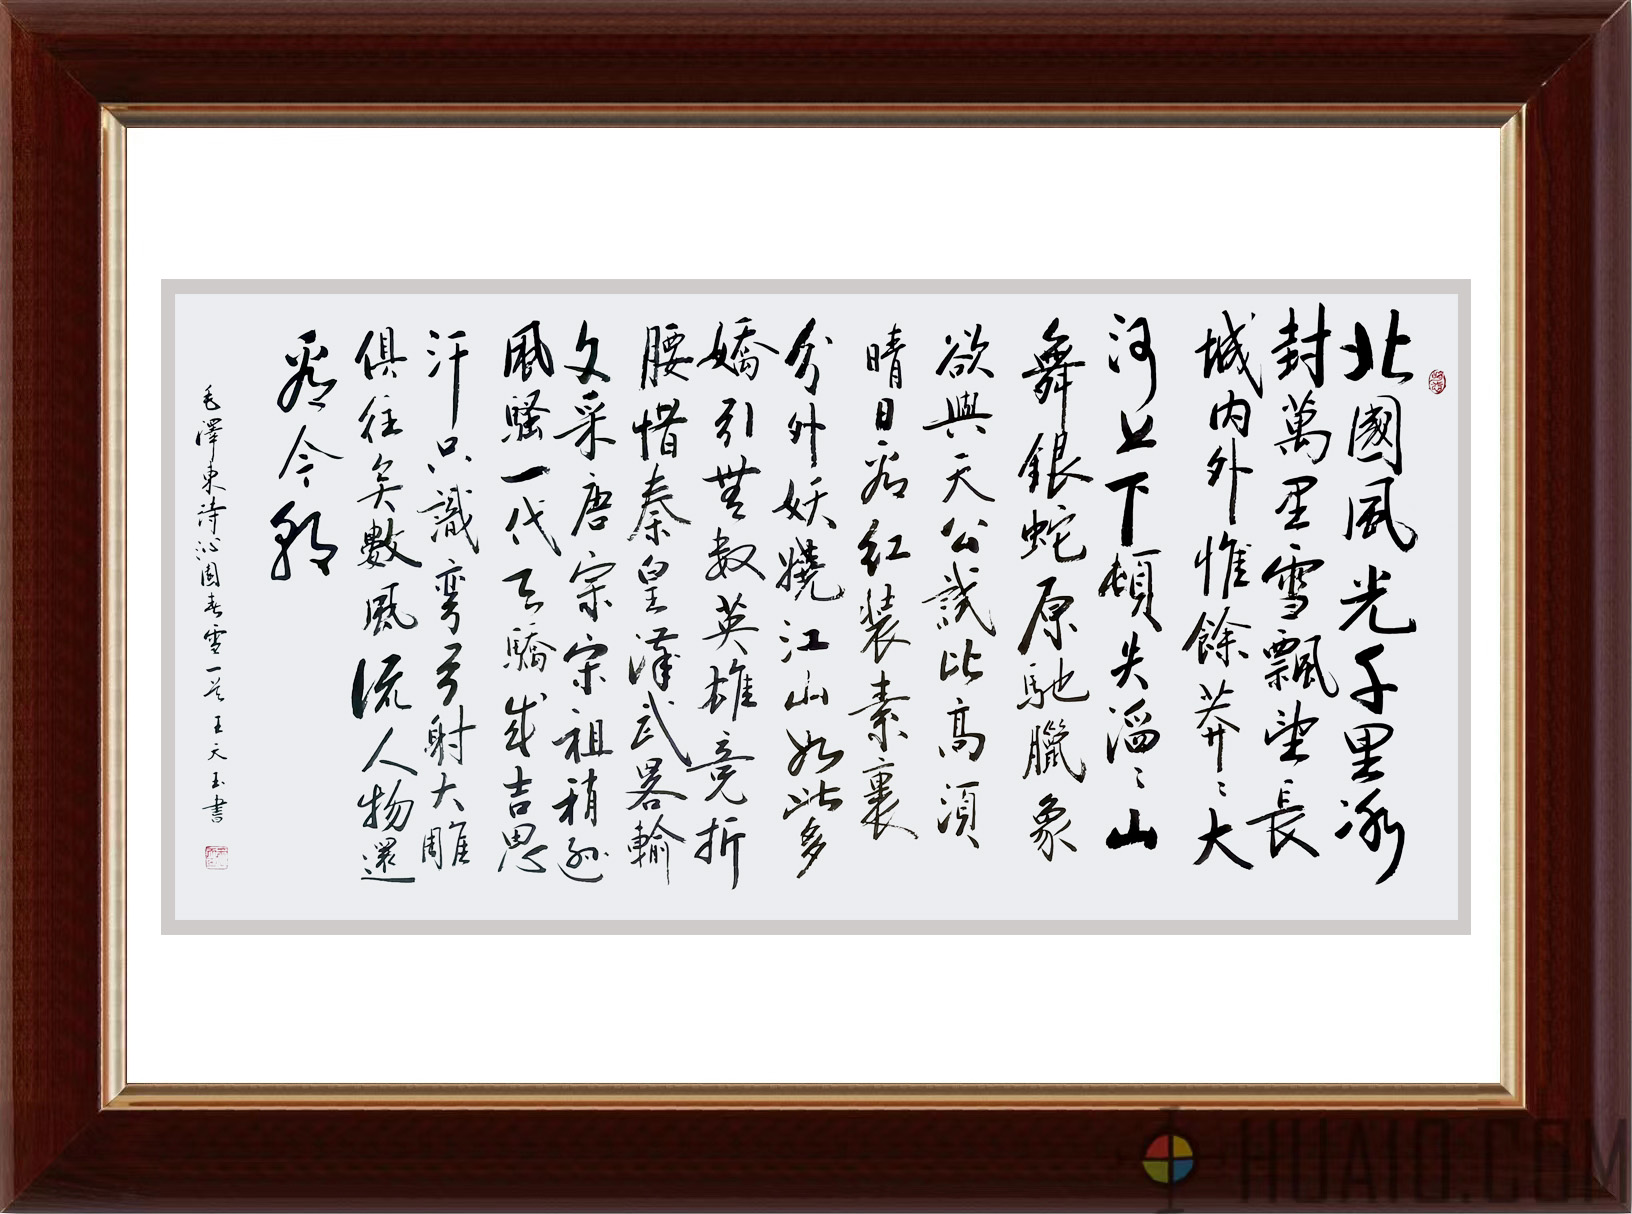 北國風光千里冰
封萬里雪飄望長
城内外惟餘莽〻大
河上下頓失滔〻山
舞銀蛇原馳臘象
欲與天公試比高須
晴日看红装素裹
分外妖嬈江山如此多
嬌引無數英雄竞折
腰惜秦皇漢武畧輸
文采唐宗宋祖稍逊
風騷一代天驕成吉思
汗只識彎弓射大雕
俱往矣數風流人物還
看今朝
毛澤東詩沁園春雪一首王天玉書
HUAIQ.COM